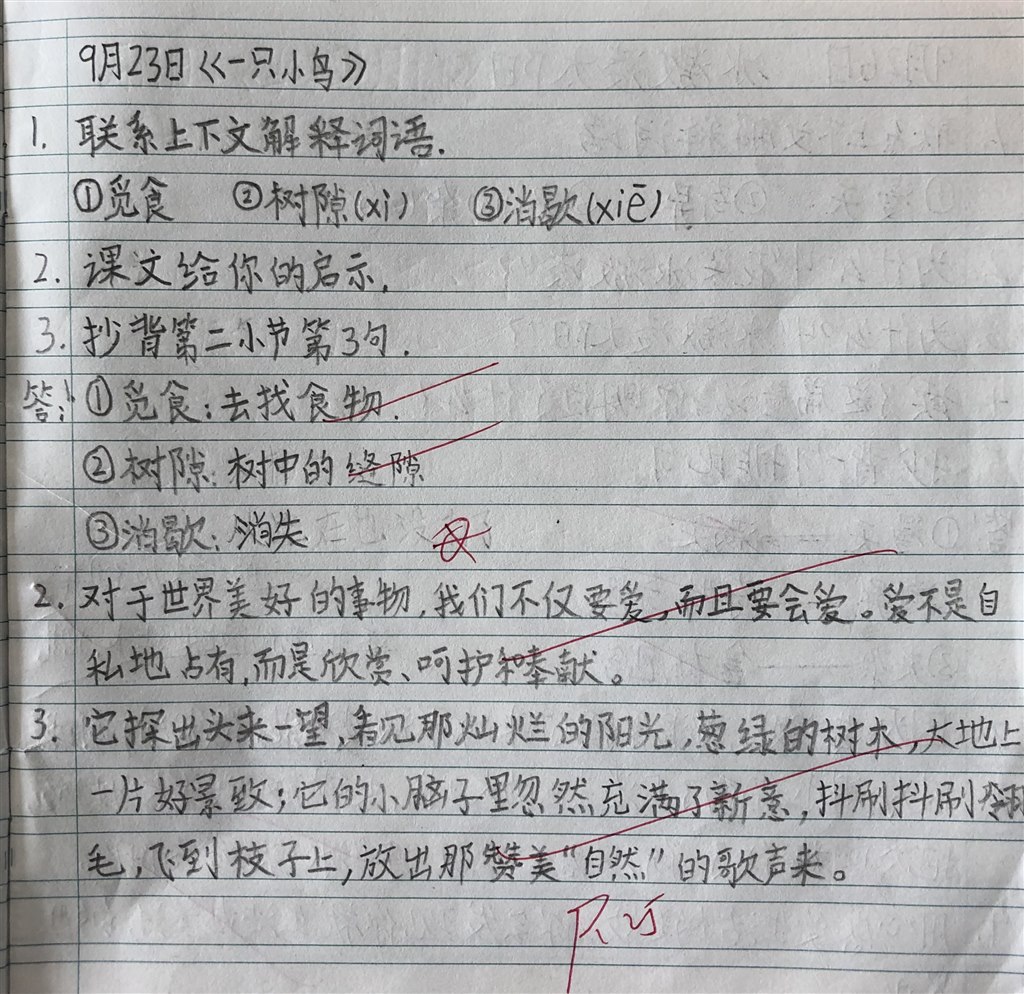 9月23日《一只小鸟》
1. 联系上下文解释词语.
①觅食 ②树隙(xì) ③消歇(xiē)
2. 课文给你的启示.
3. 抄背第二小节第3句.
答: ①觅食:去找食物.
②树隙:树中的缝隙
③消歇:消失
2. 对于世界美好的事物,我们不仅要爱,而且要会爱。爱不是自
私地占有,而是欣赏、呵护和奉献。
3. 它探出头来一望,看见那灿烂的阳光,葱绿的树木,大地上
一片好景致;它的小脑子里忽然充满了新意,抖刷抖刷翎
毛,飞到枝子上,放出那赞美“自然”的歌声来。